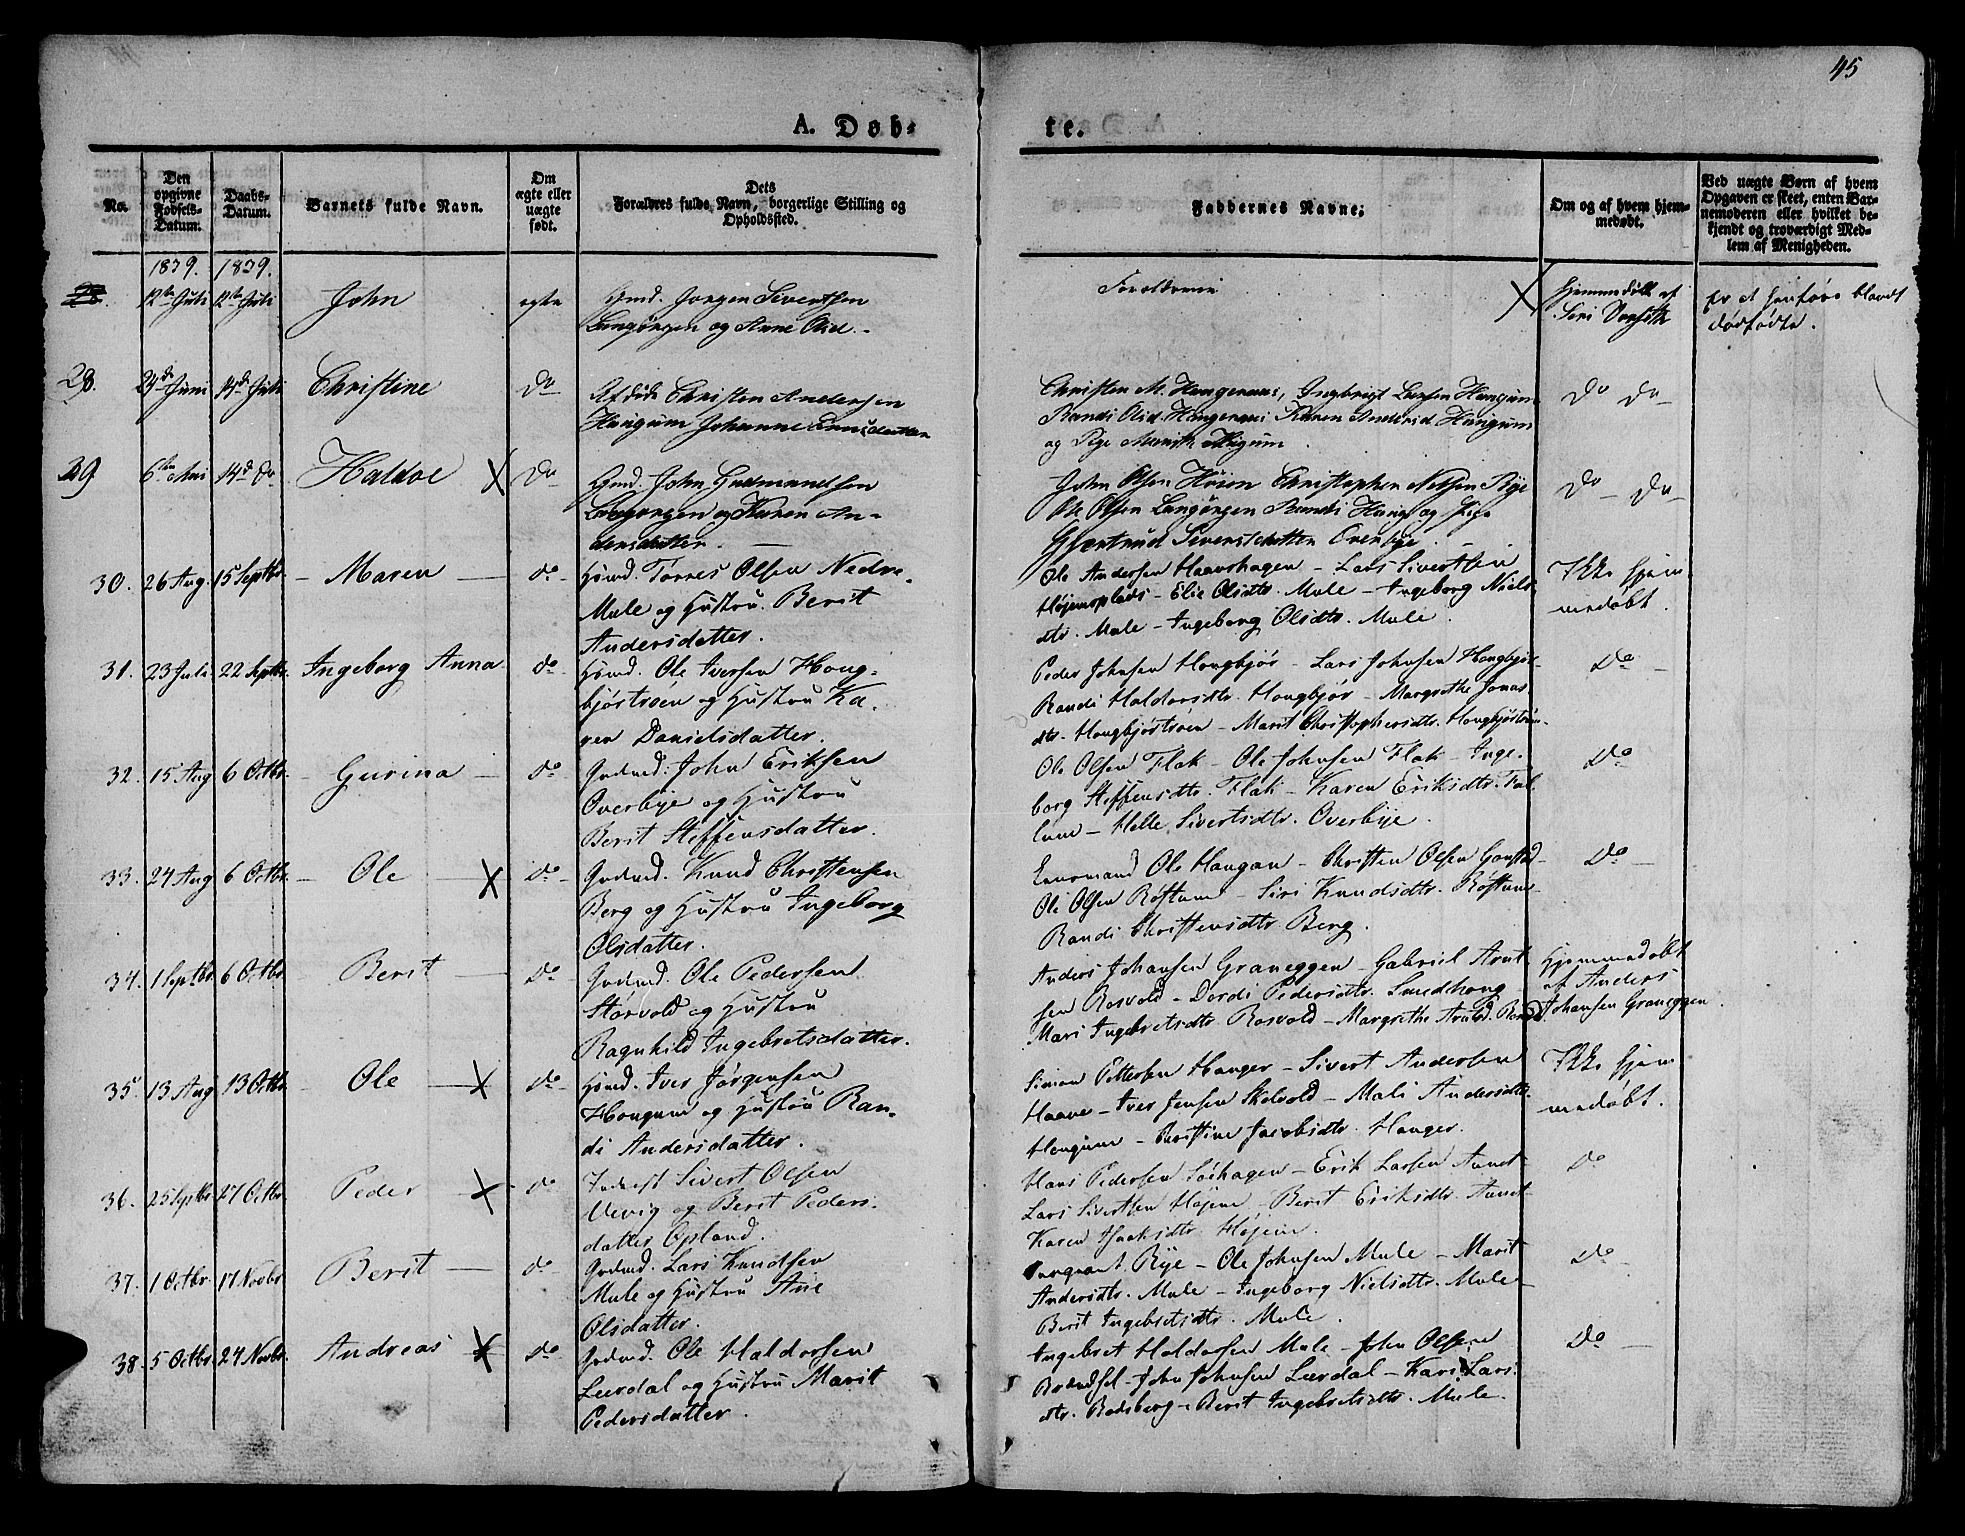 45
A. Døb-
te.
No.
Den opgivne Fødsels-Datum.
Daabs-Datum.
Barnets fulde Navn.
Om ægte eller uægte født.
Dets Forældres fulde Navn, borgerlige Stilling og Opholdssted.
Faddernes Navne.
Om og af hvem hjemmedøbt.
Ved uægte Børn af hvem Opgaven er skeet, enten Barnemoderen eller hvilket bekjendt og troværdigt Medlem af Menigheden.
1839. 1839.
12te Juli 12te Juli John ægte Gmd. Jørgen Sivertsen
Langørgen og Anne Olsd.
Forældrene
Hjemmedøbt af
Siri
er at henføre blandt
dødfødte.
28. 24de Juni 14de Juli Christine Do Afdøde Christen Andersen
Haugum Johanne Larsdatter
Christen M. Haugenæs, Ingebrigt Larsen Haugum
Randi Olsd. Haugenæs Karen Andersd Haugum
og Pige Marith Haugum
Do Do
29 6te Mai 14de Do Haldoe X Do Gmd. John Gudmundsen
Langørgen og Karen An-
dersdatter.
John Olsen Høien Christopher Nilsen Rye
Ole Olsen Langørgen Randi Haug og Pige
Gjertrud Siversdatter Overbye
Do Do
30. 26 Aug. 15 Septbr. Maren do Huusmd. Torres Olsen Nedre
Mule og Hustru Berit
Andersdatter.
Ole Andersen Haavshagen - Lars Sivertsen
Høiemsplads - Elie Olsdtr. Mule - Ingeborg Niels
dtr. Mule - Ingeborg Olsdtr. Mule.
Ikke hjem
medøbt.
31. 23 Juli 22 Septbr. Ingeborg Anna do Huusmd. Ole Iversen Houg-
bjørtrøen og Hustru Ka-
ren Danielsdatter.
Peder Johnsen Hougbjør - Lars Johnsen Hougbjør
Randi Haldorsdtr. Hougbjør - Margrethe Jonas
dtr. Hougbjørtrøen - Marit Christophersdtr. Hougbjørtrøen
Do
32. 15 Aug 6 Octbr. Gurina do Gaardmd. John Eriksen
Overbye og Hustru
Berit Steffensdatter.
Ole Olsen Flak - Ole Johnsen Flak - Inge-
borg Steffensdtr. Flak - Karen Eriksdtr.
- Helle Sivertsdtr. Overbye.
Do
33. 24 Aug 6 Octbr. Ole X do Gaardmd. Knud Christensen
Berg og Hustru Ingeborg
Olsdatter.
Ole Haugan - Christen Olsen
Ole Olsen Røstum - Siri Knudsdtr. Røstum
Randi Christensdtr Berg.
Do
34. 1 Septbr. 6 Octbr. Berit do Gaardmd. Ole Pedersen
Størvold og Hustru
Ragnhild Ingebretsdatter.
Anders Johansen Graneggen - Gabriel Arnt-
sen Rosvold - Dordi Pedersdtr. Smedhoug
Mari Ingebretsdtr Rosvold - Margrethe
Hjemmedøbt
af Anders
Johansen Graneggen.
35. 13 Aug 13 Octbr. Ole X do Huusmd. Iver Jørgensen
Hougum og Hustru Ran-
di Andersdatter.
Simon Pettersen Hanger - Sivert Andersen
Haave - Iver Jensen Skelvold - Mali Andersdtr.
Hougum - Christine Jacobsdtr. Hanger.
Ikke hjem
medøbt.
36. 25 Septbr. 27 Octbr. Peder X do Inderst Sivert Olsen
Ulevig og Berit Peders-
datter Opland.
Hans Pedersen - Erik Larsen
Lars Sivertsen Høiem - Berit Eriksdtr.
Karen Isaksdtr. Høiem.
do
37. 1 Octbr. 17 Novbr. Berit do Gaardmd. Lars Knudsen
Mule og Hustru Ane
Olsdatter.
Sergeant Rye - Ole Johnsen Mule - Marit
Andersdtr. Mule - Ingeborg Nielsdtr. Mule
Berit Ingebretsdtr. Mule.
do
38. 5 Octbr. 24 Novbr. Andreas X do Gaardmd. Ole Haldorsen
Leerdal og Hustru Marit
Pedersdatter.
Ingebret Haldorsen Mule - John Olsen
- John Johnsen Leerdal - Kari Lars
dtr. Rodsberg - Berit Ingebretsdtr. Mule.
Do